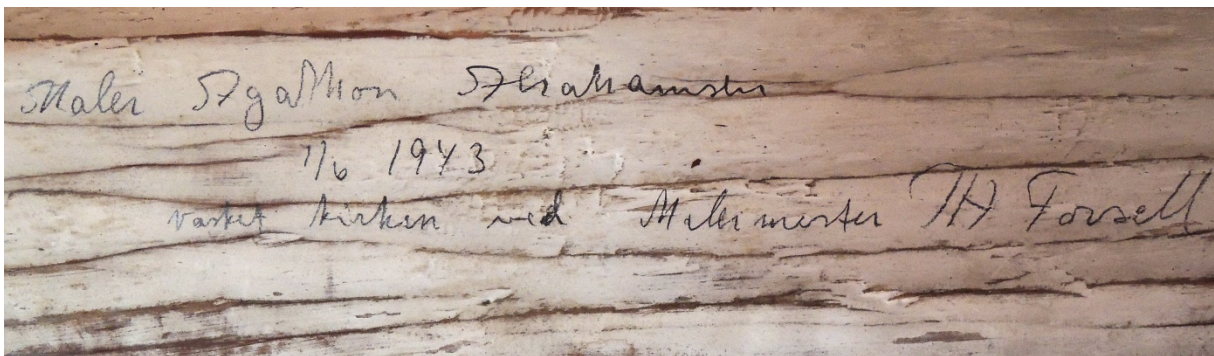 Maler Agathon Abrahamsen
1/6 1943
vasket kirken ved Malermester TH Forsell